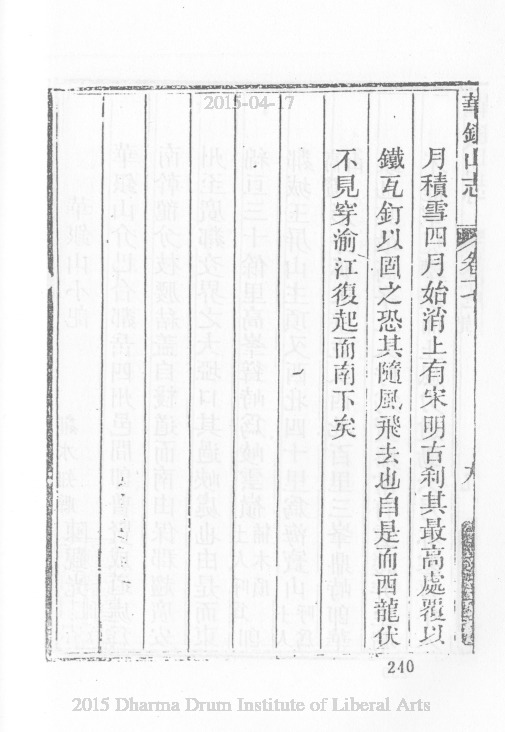 2015-04-17
華銀山志
卷十
九
月積雪四月始消上有宋明古刹其最高處覆以
鐵瓦釘以固之恐其隨風飛去也自是而西龍伏
不見穿渝江復起而南下矣
240
2015 Dharma Drum Institute of Liberal Arts